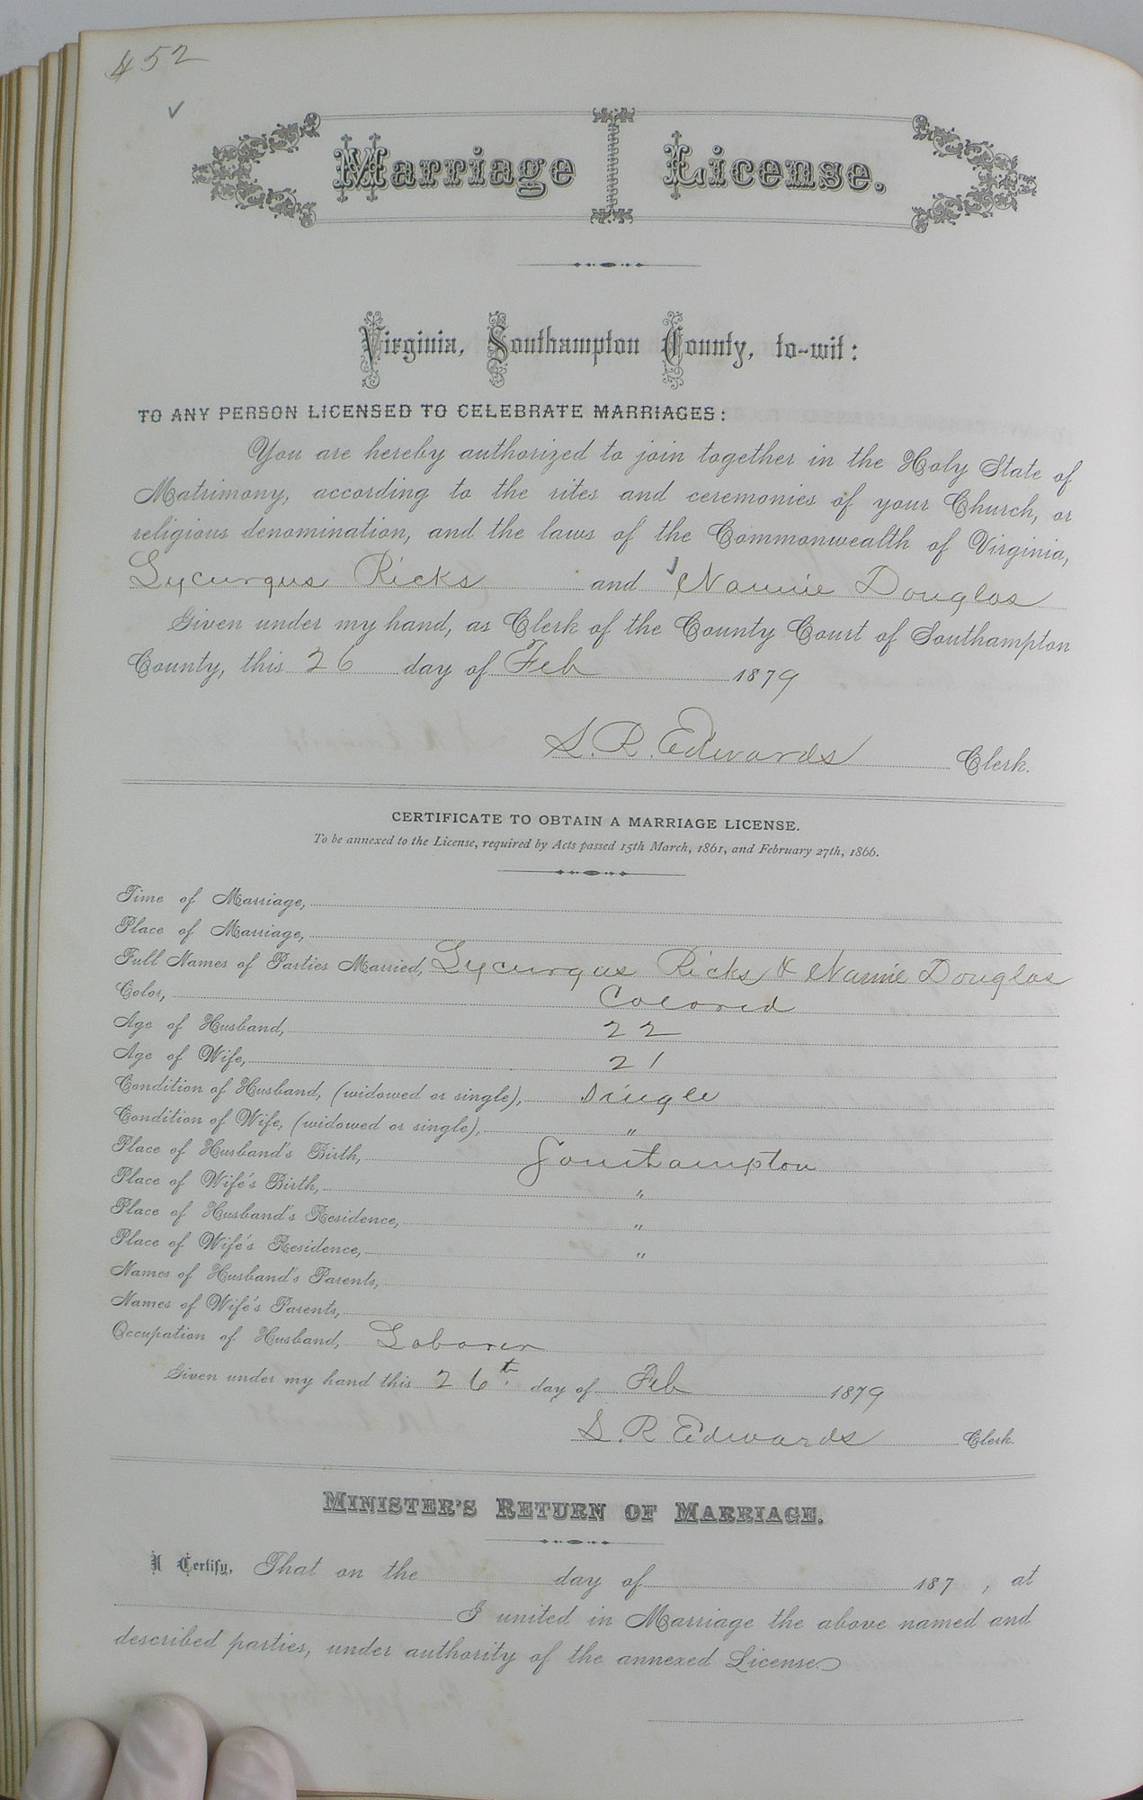 452
Marriage License.
Virginia, Southampton County, to-wit:
TO ANY PERSON LICENSED TO CELEBRATE MARRIAGES:
You are hereby authorized to join together in the Holy State of
Matrimony, according to the rites and ceremonies of your Church, or
religious denomination, and the laws of the Commonwealth of Virginia,
Lycurgus Ricks and Nannie Douglas
Given under my hand, as Clerk of the County Court of Southampton
County, this 26 day of Feb 1879
S. R. Edwards Clerk.
CERTIFICATE TO OBTAIN A MARRIAGE LICENSE.
To be annexed to the License, required by Acts passed 15th March, 1861, and February 27th, 1866.
Time of Marriage,
Place of Marriage,
Full Names of Parties Married, Lycurgus Ricks & Nannie Douglas
Color, Colored
Age of Husband, 22
Age of Wife, 21
Condition of Husband, (widowed or single), Single
Condition of Wife, (widowed or single), "
Place of Husband's Birth, Southampton
Place of Wife's Birth, "
Place of Husband's Residence, "
Place of Wife's Residence, "
Names of Husband's Parents,
Names of Wife's Parents,
Occupation of Husband, Laborer
Given under my hand this 26th day of Feb 1879
S. R Edwards Clerk.
MINISTER'S RETURN OF MARRIAGE.
I Certify, That on the day of 187 , at
I united in Marriage the above named and
described parties, under authority of the annexed License.